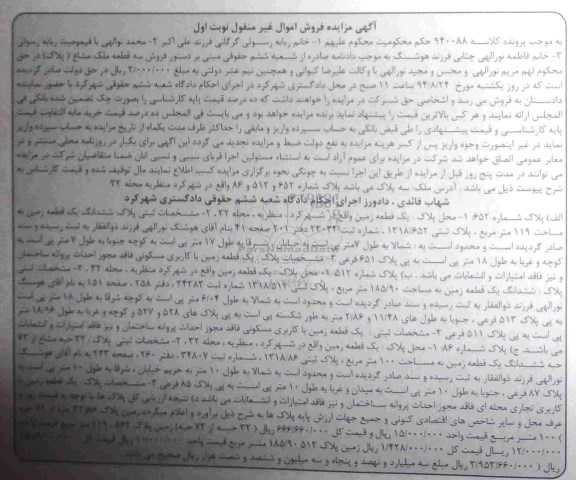 آگهی مزایده فروش اموال غیر منقول نوبت اول
به موجب پرونده کلاسه ۹۴۰۰۸۸ حکم محکومیت محکوم علیهم ۱- خانم ربابه رسولی گرگانی فرزند علی اکبر ۲- محمد نوالهی با قیمومیت ربابه رسولی
۳- خانم فاطمه نورالهی چنانی فرزند هوشنگ به موجب دادنامه صادره از شعبه ششم حقوقی مبنی بر دستور فروش سه قطعه ملک مشاع ( پلاک) در حق
محکوم لهم مریم نورالهی و محسن و مجید نورالهی با وکالت علیرضا کیوانی و همچنین نیم عشر دولتی به مبلغ ۲/۰۰۰/۰۰۰ ریال در حق دولت صادر گردیده
است که در روز یکشنبه مورخ ۹۴/۸/۲۴ ساعت ۱۱ صبح در محل دادگستری شهرکرد در اجرای احکام دادگاه شعبه ششم حقوقی شهرکرد با حضور نماینده
دادستان به فروش می رسد و اشخاصی حق شرکت در مزایده را خواهند داشت که ده درصد قیمت پایه کارشناسی را بصورت چک تضمین شده بانکی فی
المجلس ارائه نمایند و هر کس بالاترین قیمت را پیشنهاد نماید برنده مزایده خواهد بود و می بایست فی المجلس ده درصد قیمت خرید مابه التفاوت قیمت
پایه کارشناسی و قیمت پیشنهادی را طی فیش بانکی به حساب سپرده واریز و مابقی را حداکثر ظرف مدت یکماه از تاریخ مزایده به حساب سپرده واریز
نماید در غیر اینصورت وجوه واریز پس از کسر هزینه مزایده به نفع دولت ضبط و مزایده تجدید می گردد این آگهی برای یکبار در روزنامه محلی منتشر و در
معابر عمومی الصاق خواهد شد شرکت در مزایده برای عموم آزاد است به استثناء مسئولین اجرا قربای نسبی و نسبی آنان ضمنا متقاضیان شرکت در مزایده
می توانند در مدت پنج روز قبل از مزایده از طریق این اجرا نسبت به چونگی نحوه برگزاری مزایده کسب اطلاع نمایند مال توقیف شده و قیمت کارشناس به
شرح پیوست ذیل می باشد . آدرس ملک سه پلاک می باشد پلاک شماره ۶۵۲ و ۵۱۲ و ۸۶ واقع در شهرکرد منظریه محله ۳۲
شهاب قائدی ، دادورز اجرای احکام دادگاه شعبه ششم حقوقی دادگستری شهرکرد
الف) پلاک شماره ۶۵۲ ۱- محل پلاک : یک قطعه زمین واقع در شهرکرد ، منظریه ، محله ۳۲ . ۲- مشخصات ثبتی پلاک ششدانگ یک قطعه زمین به
مساحت ۱۱۹ متر مربع ، پلاک ثبتی ۱۳۱۸/۶۵۲ ، شماره ثبت دفتر ۲۰۱ صفحه ۴۱ بنام آقای هوشنگ نورالهی فرزند ذوالفقار به ثبت رسیده و سند
صادر گردیده است و محدود است به : شمالا به طول ۷متر پی است به خیابان ، شرقا به طول ۱۷ متر پی است به کوچه جنوبا به طول ۷ متر پی است به
کوچه و غربا به طول ۱۸ متر پی است به پی پلاک ۶۵۱ فرعی ۳- مشخصات پلاک : یک قطعه زمین با کاربری مسکونی فاقد مجوز احداث پروانه ساختمان
و نیز فاقد امتیازات و انشعابات می باشد . ب) پلاک شماره ۵۱۲ ۱-محل پلاک : یک قطعه زمین واقع در شهرکرد منظریه ، محله ۳۲ . ۲- مشخصات ثبتی
پلاک : ششدانگ یک قطعه زمین به مساحت ۱۸۵/۹۰ متر مربع ، پلاک ثبتی ۱۳۱۸/۵۱۲ شماره ثبت ۳۴۲۸۳ دفتر ۲۵۸ ، صفحه ۱۵۱ به نام آقای هوشنگ
نورالهی فرزند ذوالفقار به ثبت رسیده و سند صادر گردیده است و محدود است به شمالا به طول ۶/۰۴ متر پی است به کوچه شرقا به طول ۱۸ متر پی است
به پی پلاک ۵۱۳ فرعی ، جنوبا به طول های ۱۱/۴۸ و ۲/۸۶ متر به طور شکسته پی است به پی پلاک های ۵۲۸ و ۵۲۷ و کوچه و غربا به طول ۱۸/۹۶ متر
پی است به پی پلاک ۵۱۱ فرعی ۳- مشخصات ثبتی : یک قطعه زمین با کاربری مسکونی فاقد مجوز احداث پروانه ساختمان و نیز فاقد امتیازات و انشعابات
می باشد. ج) پلاک شماره ۸۶ ۱- محل پلاک : یک قطعه زمین واقع در شهرکرد ، منظریه ، محله ۳۲ . ۲- مشخصات ثبتی پلاک : ۳۲ حبه مشاع از ۷۲
حبه ششدانگ یک قطعه زمین به مساحت ۱۰۰ متر مربع ، پلاک ثبتی ۱۳۱۸/۸۶ ، شماره ثبت ۳۴۸۰۷ ، دفتر ۲۶۰ ، صفحه ۲۲۳ به نام آقای هوشنگ
نورالهی فرزند ذوالفقار به ثبت رسیده و سند صادر گردیده است و محدود است به شمالا به طول ۱۰ متر به حریم خیابان ، شرقا به طول ۱۰ متر پی است به
پلاک ۸۷ فرعی ، جنوبا به طول ۱۰ متر پی است به میدان و غربا به طول ۱۰ متر پی است به پی پلاک ۸۵ فرعی ۳- مشخصات پلاک : یک قطعه زمین با
کاربری تجاری محله ای فاقد مجوز احداث پروانه ساختمان و نیز فاقد امتیازات و انشعابات می باشد د) نتیجه ارزیابی کل پلاک ها با توجه به قیمت روز و
عرف محل و سایر شاخص های اقتصادی کنونی و جمیع جهات ارزش پایه پلاک ها به شرح ذیل برآورد و اعلام میگردد:زمین پلاک ۸۶
) ۱۰۰ متر مربع قیمت واحد ۱۵/۰۰۰/۰۰۰ ریال و قیمت کل ۶۶۶/۶۶۰/۰۰۰ ریال ( ۳۲ حبه از ۷۲ حبه) زمین پلاک ۵۶۴ ۱۱۹ متر مربع قیمت واحد
۱۲/۰۰۰/۰۰۰ ریال قیمت کل ۱/۴۲۸/۰۰۰/۰۰۰ ریال زمین پلاک ۵۱۲ ۱۸۵/۹۰ متر مربع قیمت واحد ۱۰/۰۰۰/۰۰۰ ریال قیمت کل
ریال ( ۳/۹۵۳/۶۶۰/۰۰۰ ریال مبلغ سه میلیارد و نهصد و پنجاه و سه میلیون و ششصد و شصت هزار ریال صحیح می باشد